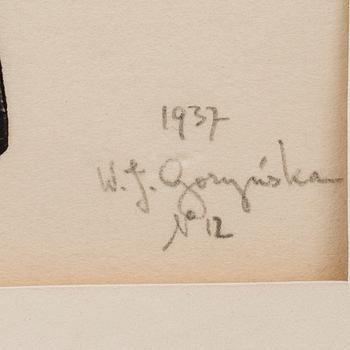 1937
W. J. Goryńska
No 12